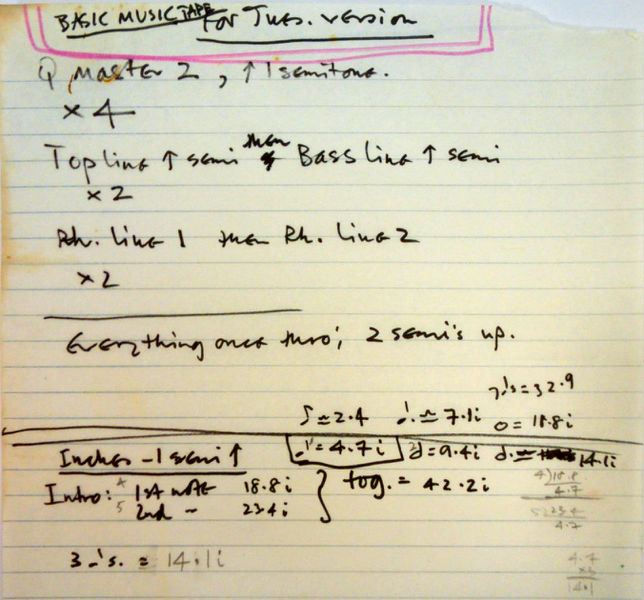 BASIC MUSIC TAPE for Tues. version
Q Master 2, ↑ 1 semitone.
x 4
Top line ↑ semi then Bass line ↑ semi
x 2
Rh. line 1 then Rh. line 2
x 2
Everything once thro', 2 semi's up.
7 's = 32.9
♪ ≃ 2.4 ♩. ≃ 7.1i o = 18.8i
♩ = 4.7i 𝅗𝅥 = 9.4i 𝅗𝅥. = 14.1i
Inches - 1 semi ↑
Intro: 4 1st note 18.8i
5 2nd ~ 23.4i
tog. = 42.2i
4)18.8
4.7
5)23.4
4.7
3 ♩'s. = 14.1i
4.7
x3
14.1